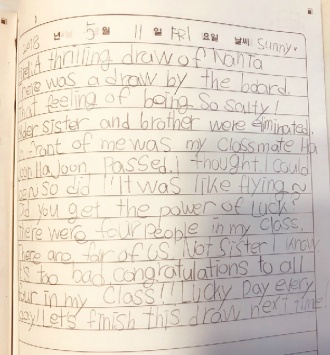 2018 년 5 월 11 일 FRI 요일 날씨 Sunny.
A thrilling draw of Nanta
was a draw by the board.
that feeling of being so salty!
sister and brother were eliminated.
front of me was my classmate Ha
Joon HaJoon passed. I thought I could
so did I! It was like flying~
Did you get the power of luck?
There were four people in my class.
there are four of us. Not sister I know
is too bad, congratulations to all
four in my class!! Lucky Day every
Let's finish this draw next time!